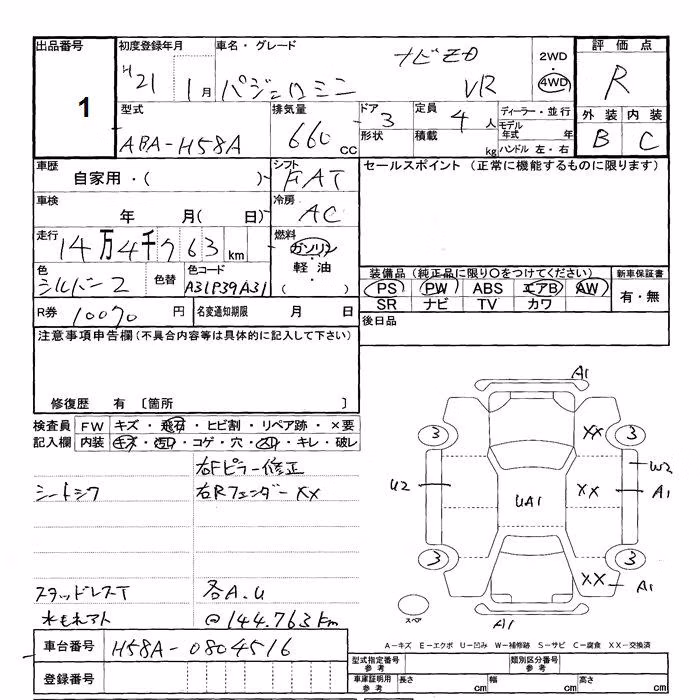 出品番号 初度登録年月 車名・グレード ナビ ED 2WD 評価点
1 H21 1月 パジェロミニ VR 4WD R
型式 排気量 ドア 定員 ディーラー・並行 外装 内装
ABA-H58A 660 cc 3 4人 モデル年式 年 B C
形状 積載 kg ハンドル 左・右
車歴 シフト セールスポイント (正常に機能するものに限ります)
自家用・( ) FAT
車検 冷房
年 月( 日) AC
走行 燃料
14万4千763 km ガソリン
軽油
色 色替 色コード ( ) 装備品 (純正品に限り〇をつけてください) 新車保証書
シルバー2 A31P39A31 PS PW ABS エアB AW 有・無
SR ナビ TV カワ
R券 10070 円 名変通知期限 月 日 後日品
注意事項申告欄 (不具合内容等は具体的に記入して下さい)
修復歴 有 〔箇所 〕
検査員 FW キズ・飛石・ヒビ割・リペア跡・×要
記入欄 内装 キズ・汚れ・コゲ・穴・スレ・キレ・破レ
右Fピラー修正
シートシワ 右Rフェンダー XX
スタッドレスT 各A.U
@144.763km
A1
3 XX 3
W2
U2 UA1 XX A1
3 3
XX A1
スペア A1
A-キズ E-エクボ U-凹み W-補修跡 S-サビ C-腐食 XX-交換済
車台番号 H58A-0804516
型式指定番号 参考 類別区分番号 参考
登録番号
車庫証明用 参考 長さ cm 幅 cm 高さ cm